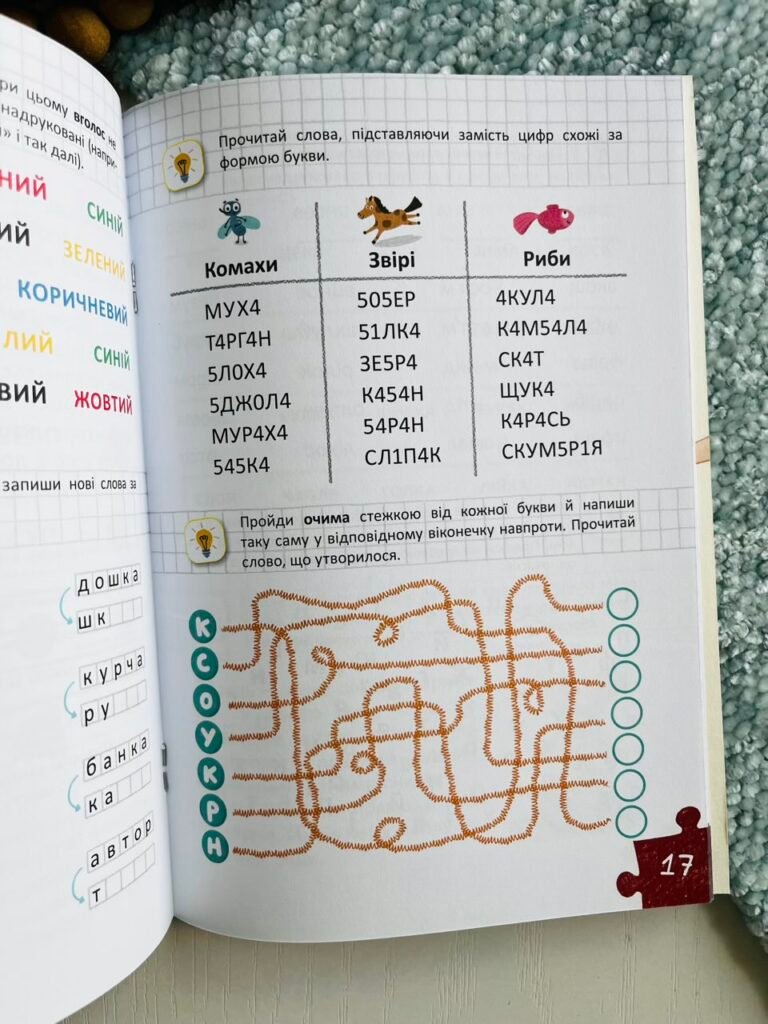 ри цьому вголос не
надруковані (напри-
» і так далі).
ний СИНІЙ
ий ЗЕЛЕНИЙ
КОРИЧНЕВИЙ
лий СИНІЙ
вий ЖОВТИЙ
запиши нові слова за
дошка
шк
курча
ру
банка
ка
автор
т
Прочитай слова, підставляючи замість цифр схожі за
формою букви.
Комахи Звірі Риби
МУХ4 505ЕР 4КУЛ4
Т4РГ4Н 51ЛК4 К4М54Л4
5Л0Х4 ЗЕ5Р4 СК4Т
5ДЖ0Л4 К454Н ЩУК4
МУР4Х4 54Р4Н К4Р4СЬ
545К4 СЛ1П4К СКУМ5Р1Я
Пройди очима стежкою від кожної букви й напиши
таку саму у відповідному віконечку навпроти. Прочитай
слово, що утворилося.
К
С
О
У
К
Р
Н
17